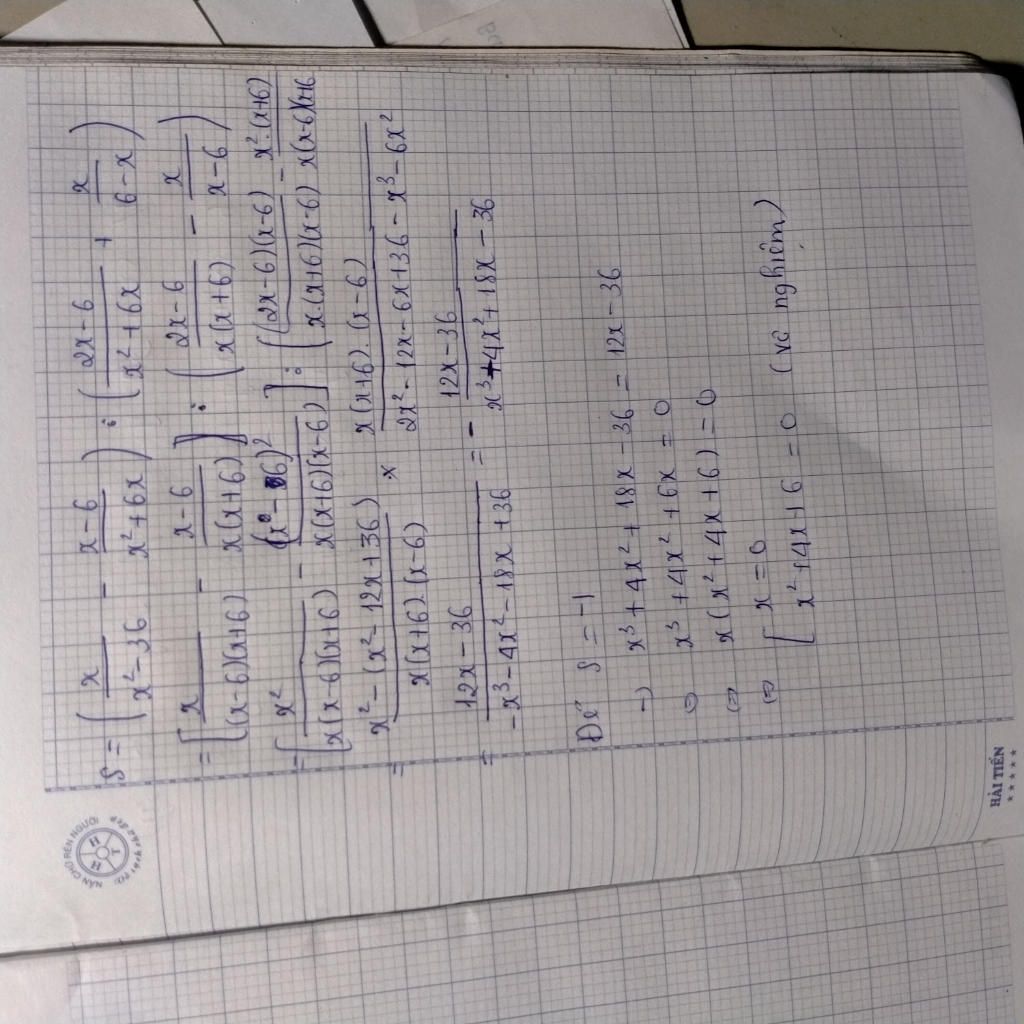 S = ( x/(x² - 36) - (x-6)/(x² + 6x) ) : ( (2x-6)/(x² + 6x) + x/(6-x) )
= [ x/((x-6)(x+6)) - (x-6)/(x(x+6)) ] : ( (2x-6)/(x(x+6)) - x/(x-6) )
= [ x²/(x(x-6)(x+6)) - (x-6)²/(x(x+6)(x-6)) ] : ( (2x-6)(x-6)/(x.(x+6)(x-6)) - x².(x+6)/(x(x-6)(x+6
= (x² - (x² - 12x + 36))/(x(x+6).(x-6)) × (x(x+6).(x-6))/(2x² - 12x - 6x + 36 - x³ - 6x²)
= (12x - 36)/(-x³ - 4x² - 18x + 36) = - (12x - 36)/(x³ + 4x² + 18x - 36)
Để S = -1
→ x³ + 4x² + 18x - 36 = 12x - 36
⇔ x³ + 4x² + 6x = 0
⇔ x(x² + 4x + 6) = 0
⇔ [ x = 0
x² + 4x + 6 = 0 (vô nghiệm)
NẮN CHỮ RÈN NGƯỜI
HẢI TIẾN